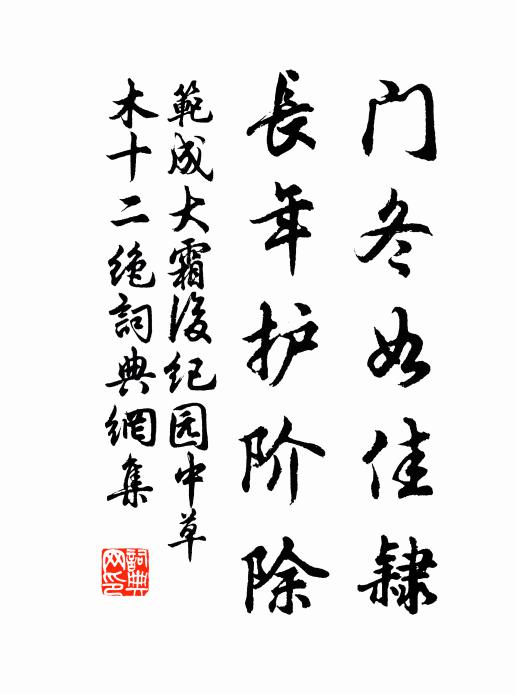 门冬如佳隷
長年护阶除
範成大霜後纪园中草
木十二绝詞典網集
詞典网印